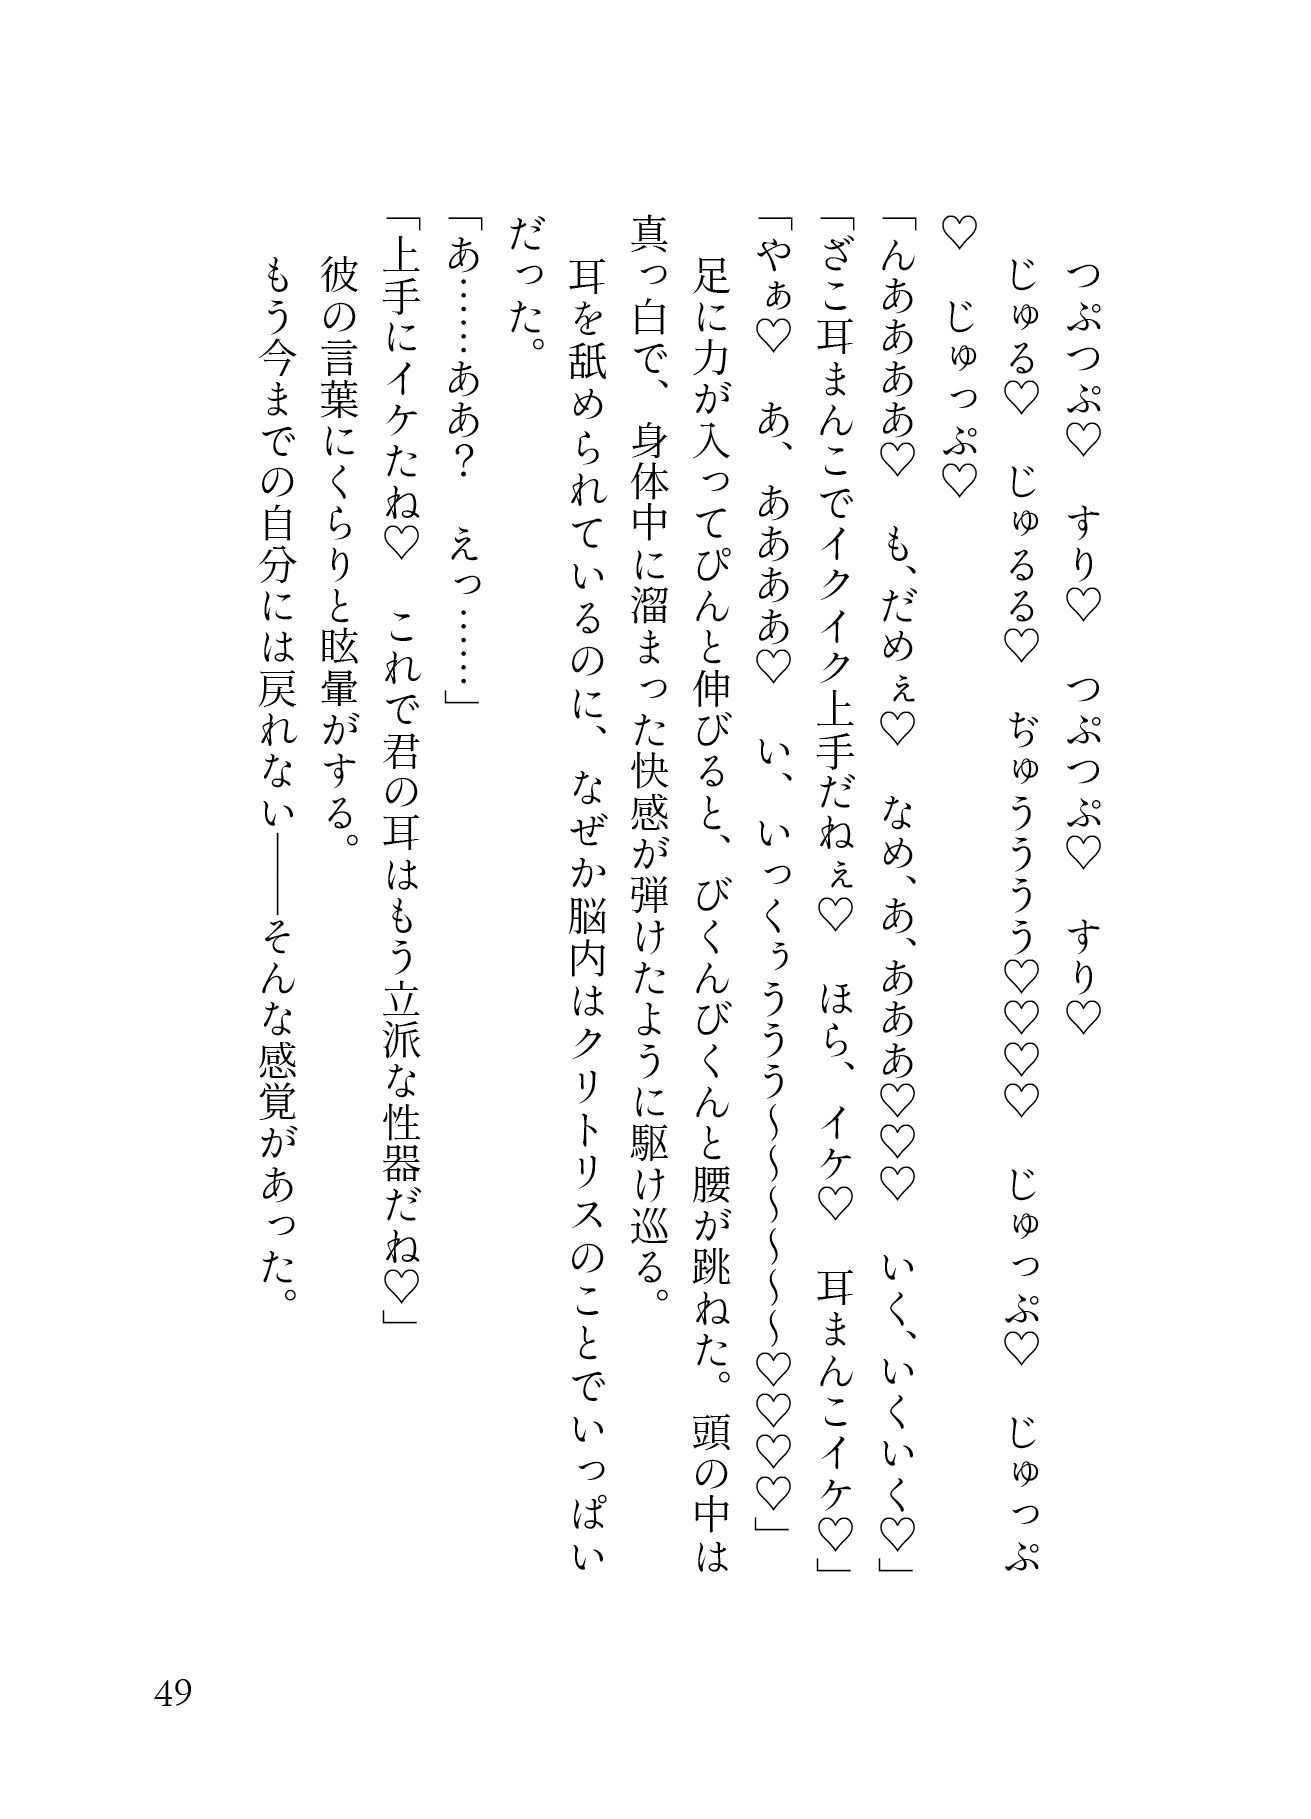 つぷつぷ♡　すり♡　つぷつぷ♡　すり♡
じゅる♡　じゅるる♡　ぢゅうううう♡♡♡♡　じゅっぷ♡　じゅっぷ
♡　じゅっぷ♡
「んああああ♡　も、だめぇ♡　なめ、あ、あああ♡♡♡　いく、いくいく♡」
「ざこ耳まんこでイクイク上手だねぇ♡　ほら、イケ♡　耳まんこイケ♡」
「やぁ♡　あ、ああああ♡　い、いっくぅううう～～～～～～♡♡♡♡」
足に力が入ってぴんと伸びると、びくんびくんと腰が跳ねた。頭の中は
真っ白で、身体中に溜まった快感が弾けたように駆け巡る。
耳を舐められているのに、なぜか脳内はクリトリスのことでいっぱい
だった。
「あ……ああ？　えっ……」
「上手にイケたね♡　これで君の耳はもう立派な性器だね♡」
彼の言葉にくらりと眩暈がする。
もう今までの自分には戻れない――そんな感覚があった。
49